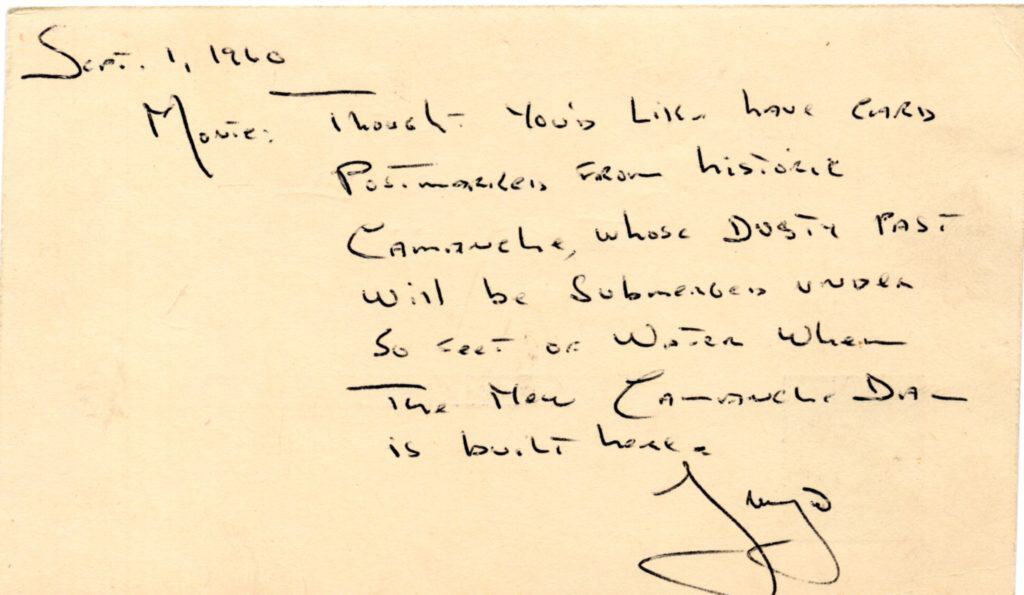 Sept. 1, 1960
Monte: Thought You'd Like have CARD
Postmarked FROM historic
Camanche, whose DUSTY PAST
will be Submerged UNDER
50 feet of Water When
The New Camanche Dam
is built here.